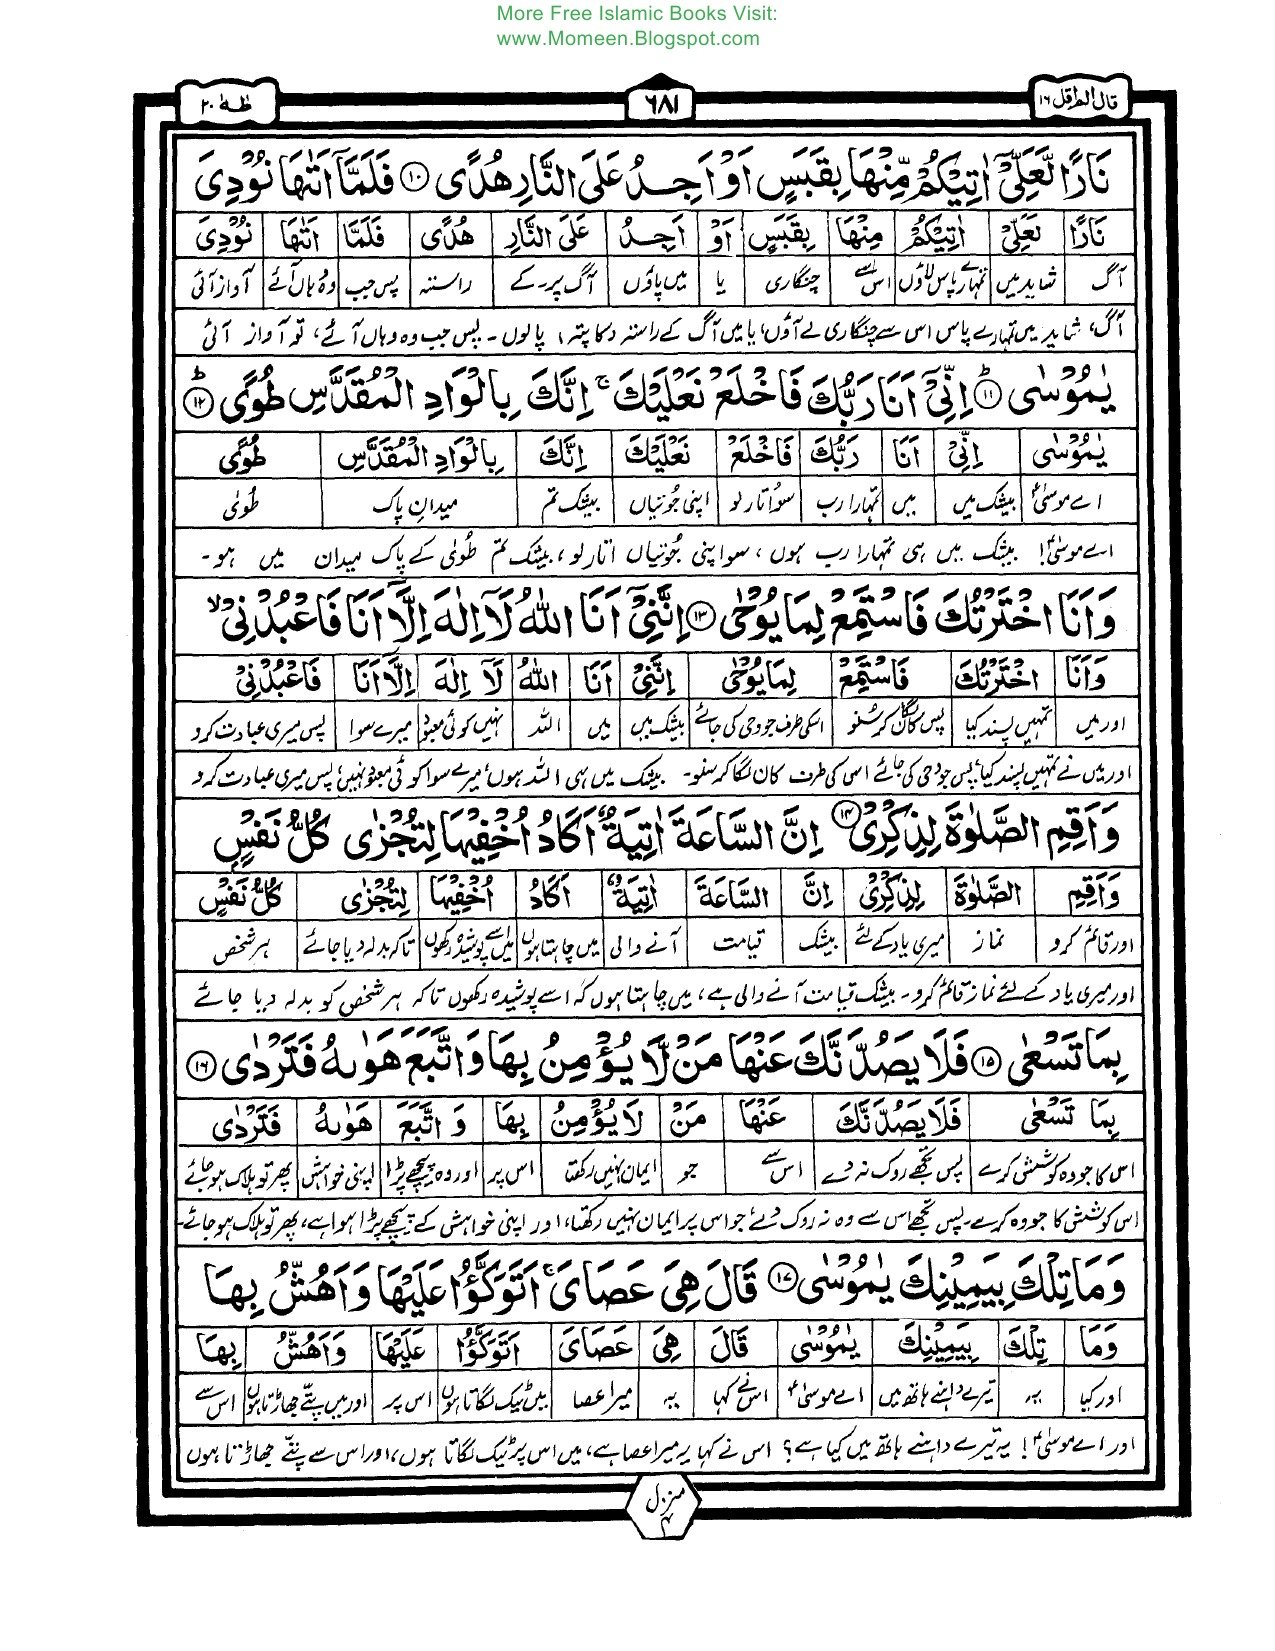 More Free Islamic Books Visit:
www.Momeen.Blogspot.com
قال الم اقل ۱۶
۶۸۱
طٰهٰ ۲۰
نَارًا لَّعَلِّیْۤ اٰتِیْكُمْ مِّنْهَا بِقَبَسٍ اَوْ اَجِدُ عَلَی النَّارِ هُدًی ۱۰ فَلَمَّاۤ اَتٰىهَا نُوْدِیَ
نَارًا لَعَلِّیْ اٰتِیْكُمْ مِنْهَا بِقَبَسٍ اَوْ اَجِدُ عَلَی النَّارِ هُدًی فَلَمَّا اَتٰىهَا نُوْدِیَ
آگ شاید میں تمہارے پاس لاؤں اس سے چنگاری یا میں پاؤں آگ پر۔ کے راستہ پس جب وہ وہاں آئے آواز آئی
آگ، شاید میں تمہارے پاس اس سے چنگاری لے آؤں، یا میں آگ کے راستہ کا پتہ پا لوں۔ پس جب وہ وہاں آئے، تو آواز آئی
یٰمُوْسٰی ۱۱ؕ اِنِّیْۤ اَنَا رَبُّكَ فَاخْلَعْ نَعْلَیْكَ ۚ اِنَّكَ بِالْوَادِ الْمُقَدَّسِ طُوًی ۱۲ؕ
یٰمُوْسٰی اِنِّیْ اَنَا رَبُّكَ فَاخْلَعْ نَعْلَیْكَ اِنَّكَ بِالْوَادِ الْمُقَدَّسِ طُوًی
اے موسیٰؑ بیشک میں میں تمہارا رب سو اتار لو اپنی جوتیاں بیشک تم میدانِ پاک طُویٰ
اے موسیٰؑ! بیشک میں ہی تمہارا رب ہوں، سو اپنی جُوتیاں اتار لو، بیشک تم طُویٰ کے پاک میدان میں ہو۔
وَ اَنَا اخْتَرْتُكَ فَاسْتَمِعْ لِمَا یُوْحٰی ۱۳ اِنَّنِیْۤ اَنَا اللّٰهُ لَاۤ اِلٰهَ اِلَّاۤ اَنَا فَاعْبُدْنِیْ ۙ
وَ اَنَا اخْتَرْتُكَ فَاسْتَمِعْ لِمَا یُوْحٰی اِنَّنِیْ اَنَا اللّٰهُ لَاۤ اِلٰهَ اِلَّا اَنَا فَاعْبُدْنِیْ
اور میں تمہیں پسند کیا پس کان لگا کر سُنو اسکی طرف جو وحی کی جائے بیشک میں میں اللہ نہیں کوئی معبود میرے سوا پس میری عبادت کرو
اور میں نے تمہیں پسند کیا، پس جو وحی کی جائے اس کی طرف کان لگا کر سنو۔ بیشک میں ہی اللہ ہوں، میرے سوا کوئی معبود نہیں، پس میری عبادت کرو
وَ اَقِمِ الصَّلٰوةَ لِذِكْرِیْ ۱۴ اِنَّ السَّاعَةَ اٰتِیَةٌ اَكَادُ اُخْفِیْهَا لِتُجْزٰی كُلُّ نَفْسٍ
وَ اَقِمِ الصَّلٰوةَ لِذِكْرِیْ اِنَّ السَّاعَةَ اٰتِیَةٌ اَكَادُ اُخْفِیْهَا لِتُجْزٰی كُلُّ نَفْسٍ
اور قائم کرو نماز میری یاد کے لئے بیشک قیامت آنے والی میں چاہتا ہوں میں اسے پوشیدہ رکھوں تاکہ بدلہ دیا جائے ہر شخص
اور میری یاد کے لئے نماز قائم کرو۔ بیشک قیامت آنے والی ہے، میں چاہتا ہوں کہ اسے پوشیدہ رکھوں تاکہ ہر شخص کو بدلہ دیا جائے
بِمَا تَسْعٰی ۱۵ فَلَا یَصُدَّنَّكَ عَنْهَا مَنْ لَّا یُؤْمِنُ بِهَا وَ اتَّبَعَ هَوٰىهُ فَتَرْدٰی ۱۶
بِمَا تَسْعٰی فَلَا یَصُدَّنَّكَ عَنْهَا مَنْ لَا یُؤْمِنُ بِهَا وَ اتَّبَعَ هَوٰىهُ فَتَرْدٰی
اس کا جو وہ کوشش کرے پس تجھے روک نہ دے اس سے جو ایمان نہیں رکھتا اس پر اور وہ پیچھے پڑا اپنی خواہش پھر تو ہلاک ہو جائے
اس کوشش کا جو وہ کرے۔ پس تجھے اس سے وہ نہ روک دے، جو اس پر ایمان نہیں رکھتا، اور اپنی خواہش کے پیچھے پڑا ہوا ہے، پھر تو ہلاک ہو جائے۔
وَ مَا تِلْكَ بِیَمِیْنِكَ یٰمُوْسٰی ۱۷ قَالَ هِیَ عَصَایَ ۚ اَتَوَكَّؤُا عَلَیْهَا وَ اَهُشُّ بِهَا
وَ مَا تِلْكَ بِیَمِیْنِكَ یٰمُوْسٰی قَالَ هِیَ عَصَایَ اَتَوَكَّؤُا عَلَیْهَا وَ اَهُشُّ بِهَا
اور کیا یہ تیرے داہنے ہاتھ میں اے موسیٰؑ اس نے کہا یہ میرا عصا میں ٹیک لگاتا ہوں اس پر اور میں پتے جھاڑتا ہوں اس سے
اور اے موسیٰؑ! یہ تیرے داہنے ہاتھ میں کیا ہے؟ اس نے کہا یہ میرا عصا ہے، میں اس پر ٹیک لگاتا ہوں، اور اس سے پتے جھاڑتا ہوں
منزل ۴